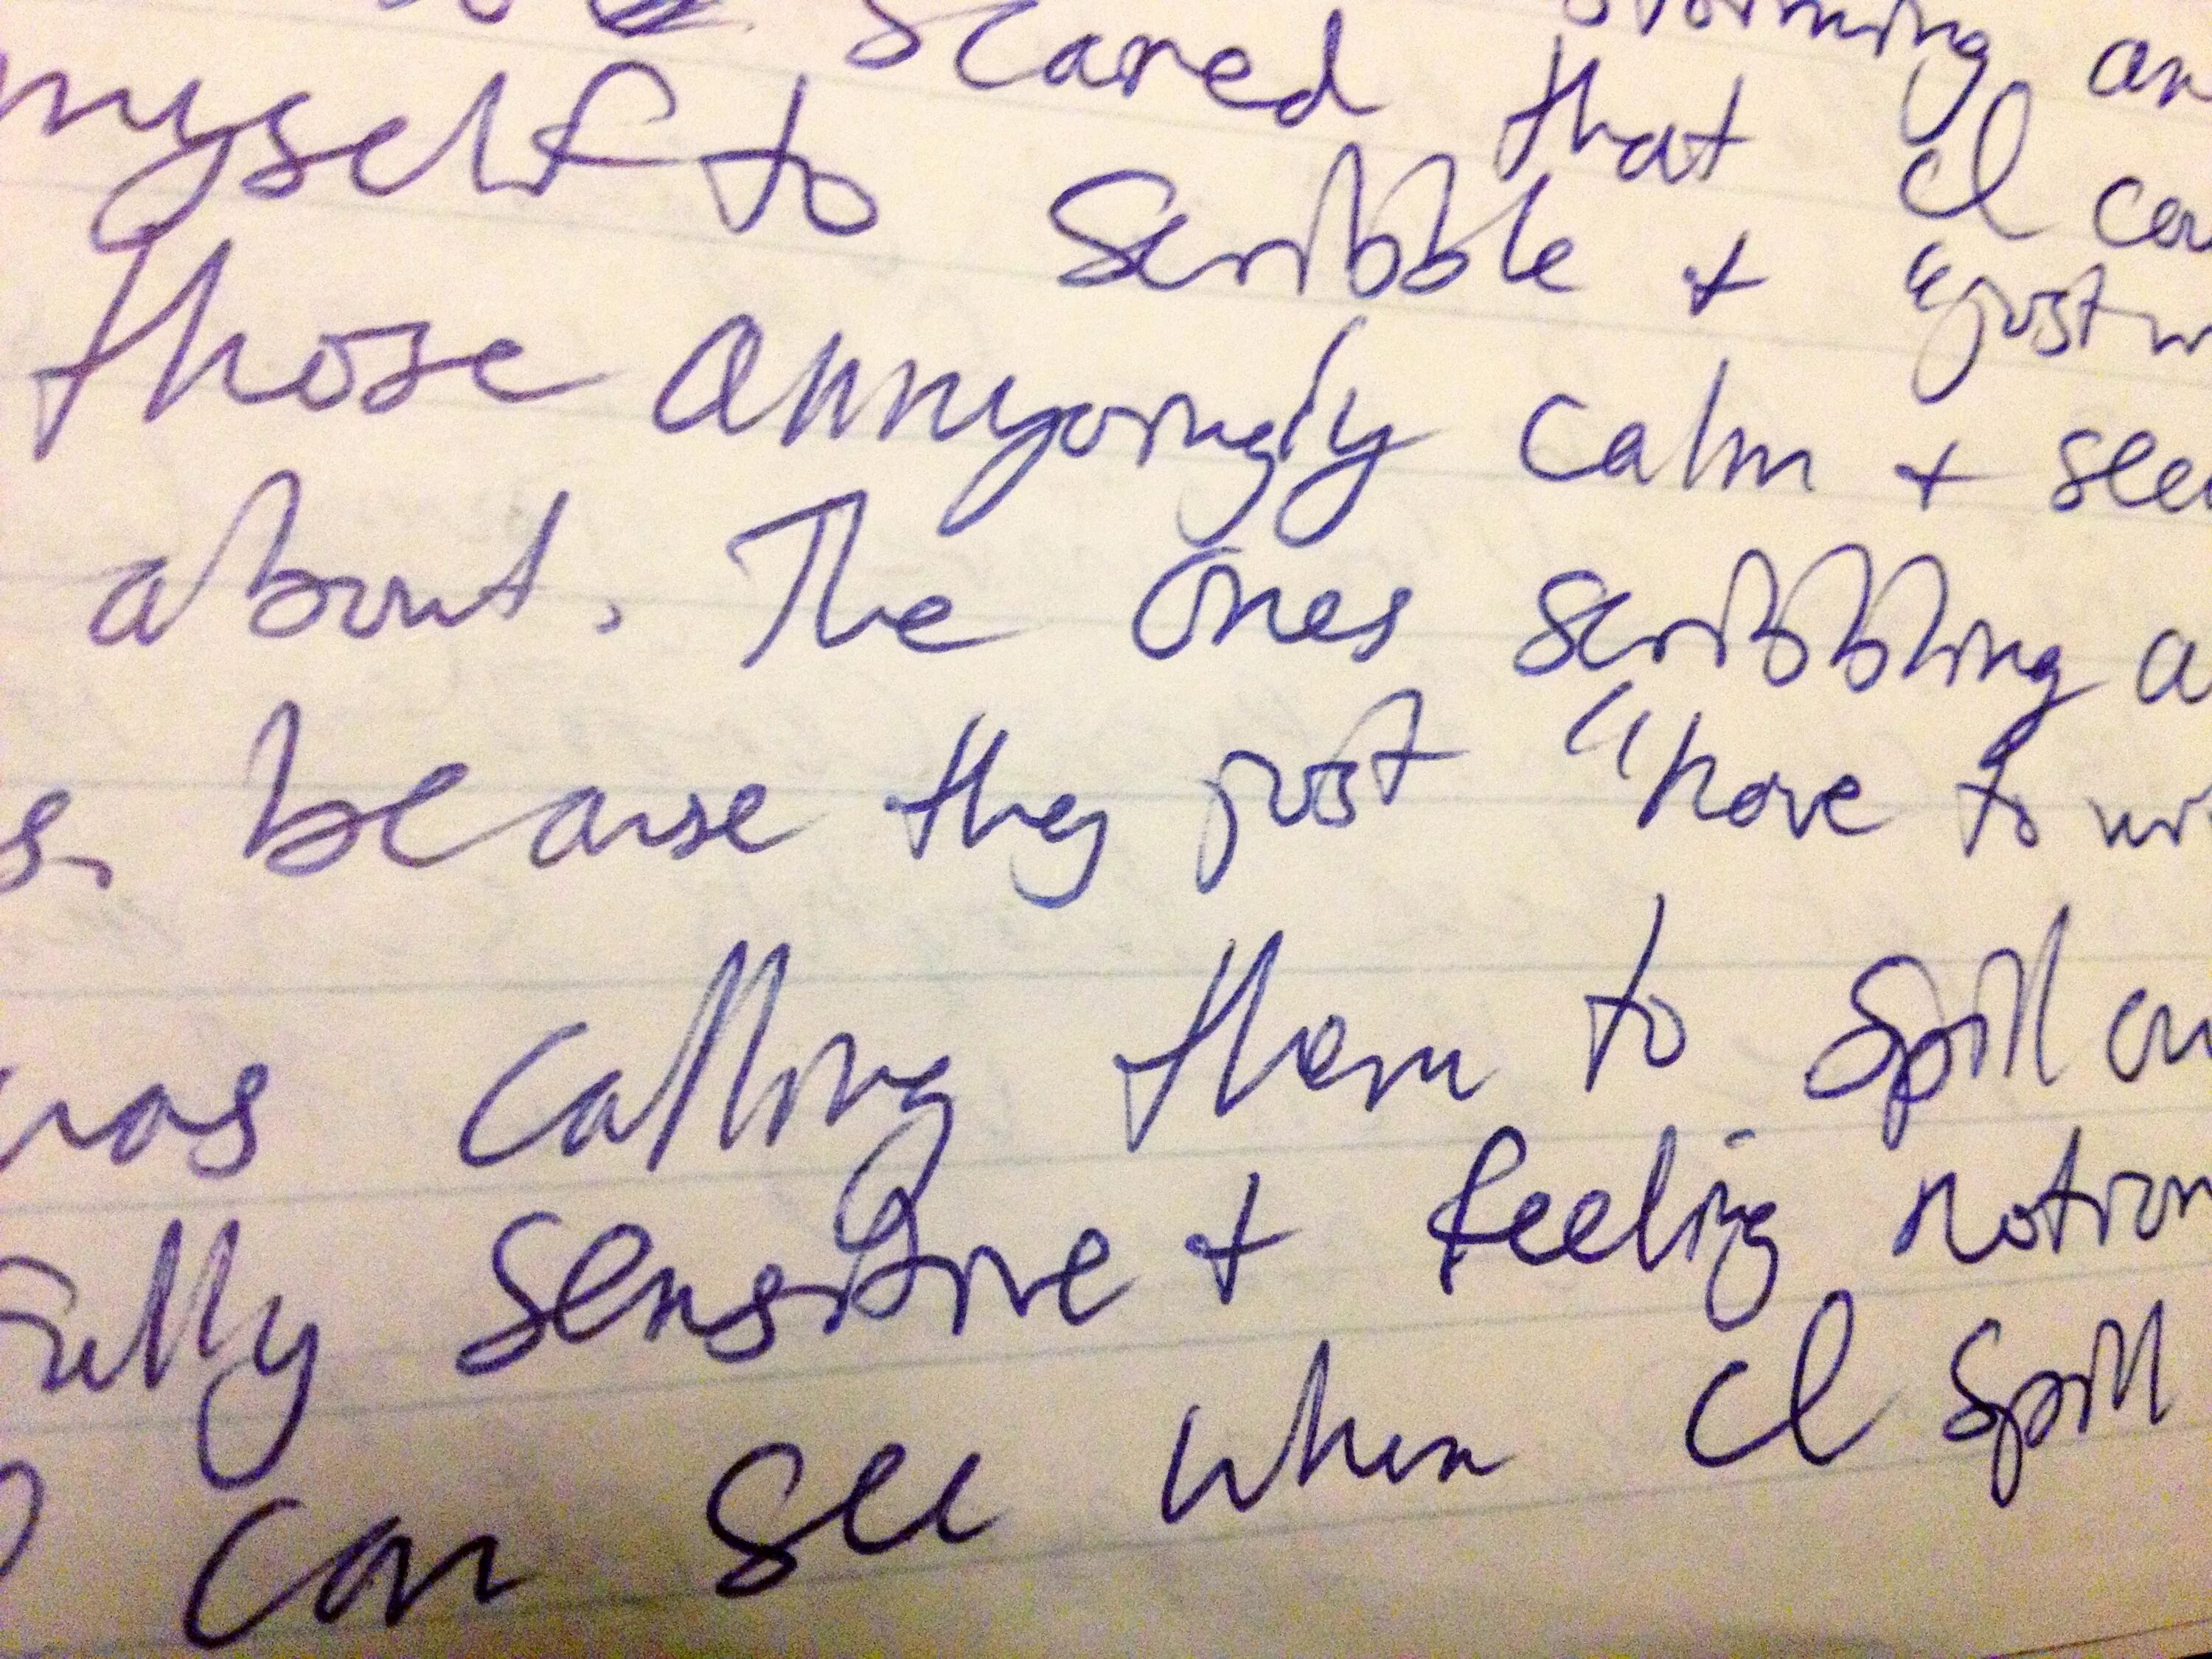 scared that I
myself to scribble + "just
those annyoingly calm +
about. The ones scribbling
because they just "have to
was calling them to spill
sensitive + feeling
can see when I spill